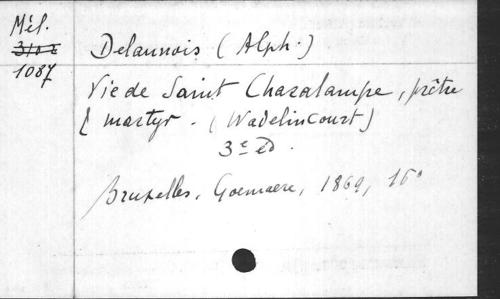 Mél.
3102
1087
Delaunois (Alph.)
Vie de Saint Charalampe, prêtre
& martyr. (Wadelincourt)
3e éd.
Bruxelles, Goemaere, 1869, 16°